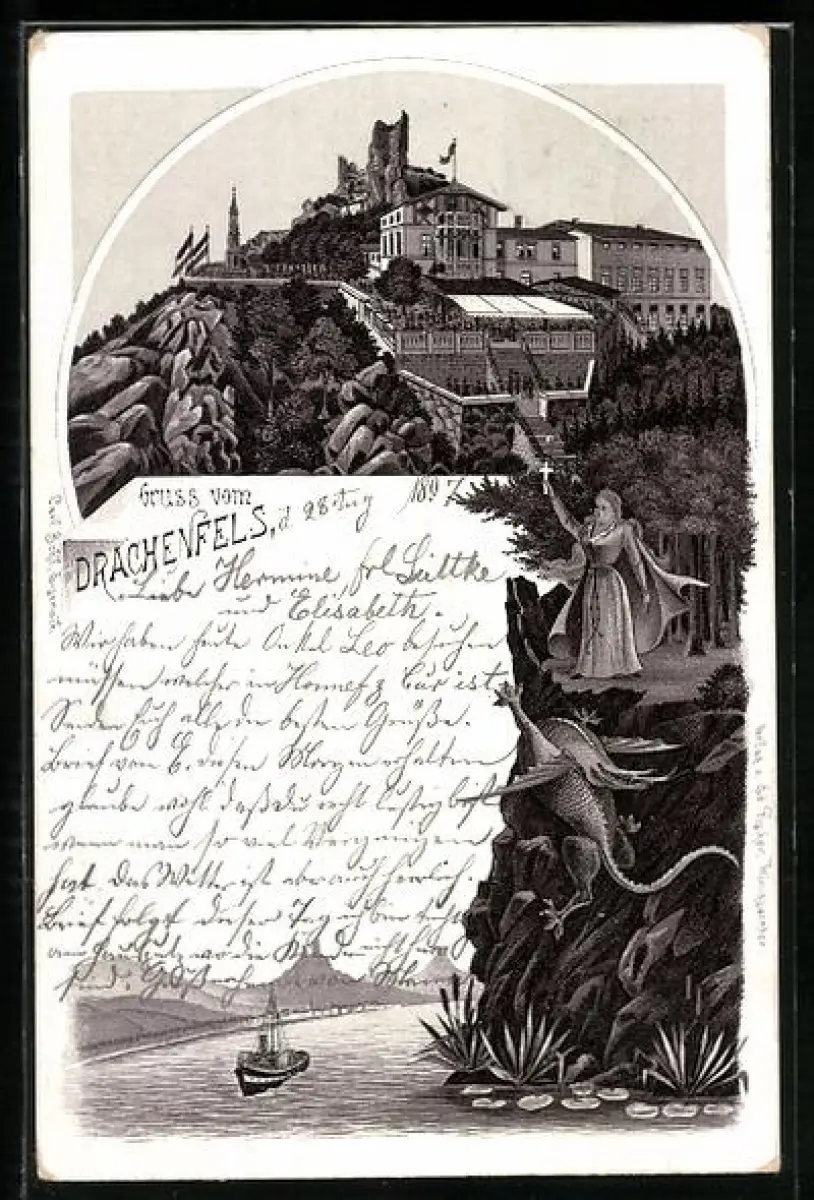 Gruss vom
DRACHENFELS, d 28 Aug 1897
Liebe Hermine, frl Lüttke
und Elisabeth.
Wir haben heute Onkel Leo besuchen
müssen welcher in Honnef z Cur ist
Senden Euch alle die besten Grüße.
Brief von E. diesen Morgen erhalten
glaube wohl daß du recht lustig bist
wenn man so viel Vergnügen
hat. Das Wetter ist aber auch herrlich.
Brief folgt dieser Tag ich bin
am Hausputz wo die Kinder nicht hier
sind. Gruß von